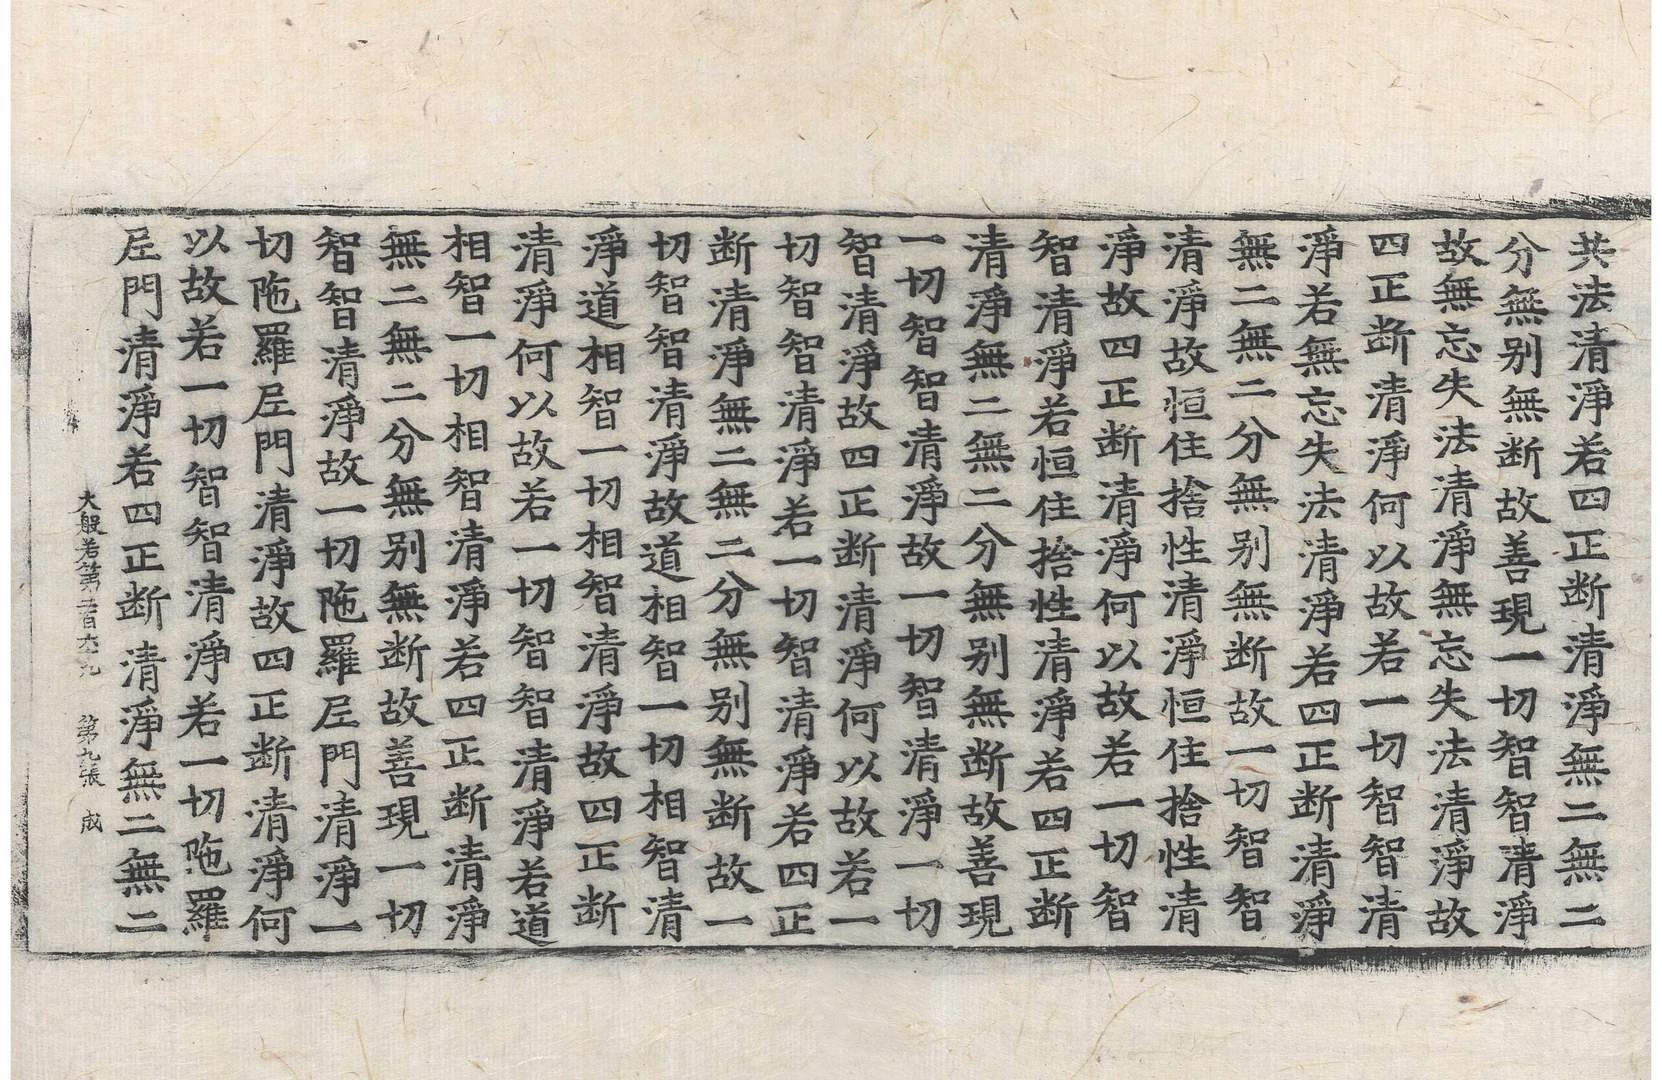 共法清淨若四正断清淨無二無二
分無别無断故善現一切智智清淨
故無忘失法清淨無忘失法清淨故
四正断清淨何以故若一切智智清
淨若無忘失法清淨若四正断清淨
無二無二分無别無断故一切智智
清淨故恒住捨性清淨恒住捨性清
淨故四正断清淨何以故若一切智
智清淨若恒住捨性清淨若四正断
清淨無二無二分無别無断故善現
一切智智清淨故一切智清淨一切
智清淨故四正断清淨何以故若一
切智智清淨若一切智清淨若四正
断清淨無二無二分無别無断故一
切智智清淨故道相智一切相智清
淨道相智一切相智清淨故四正断
清淨何以故若一切智智清淨若道
相智一切相智清淨若四正断清淨
無二無二分無别無断故善現一切
智智清淨故一切陁羅𡰱門清淨一
切陁羅𡰱門清淨故四正断清淨何
以故若一切智智清淨若一切陁羅
𡰱門清淨若四正断清淨無二無二
大般若第二百六十九 第九張 成